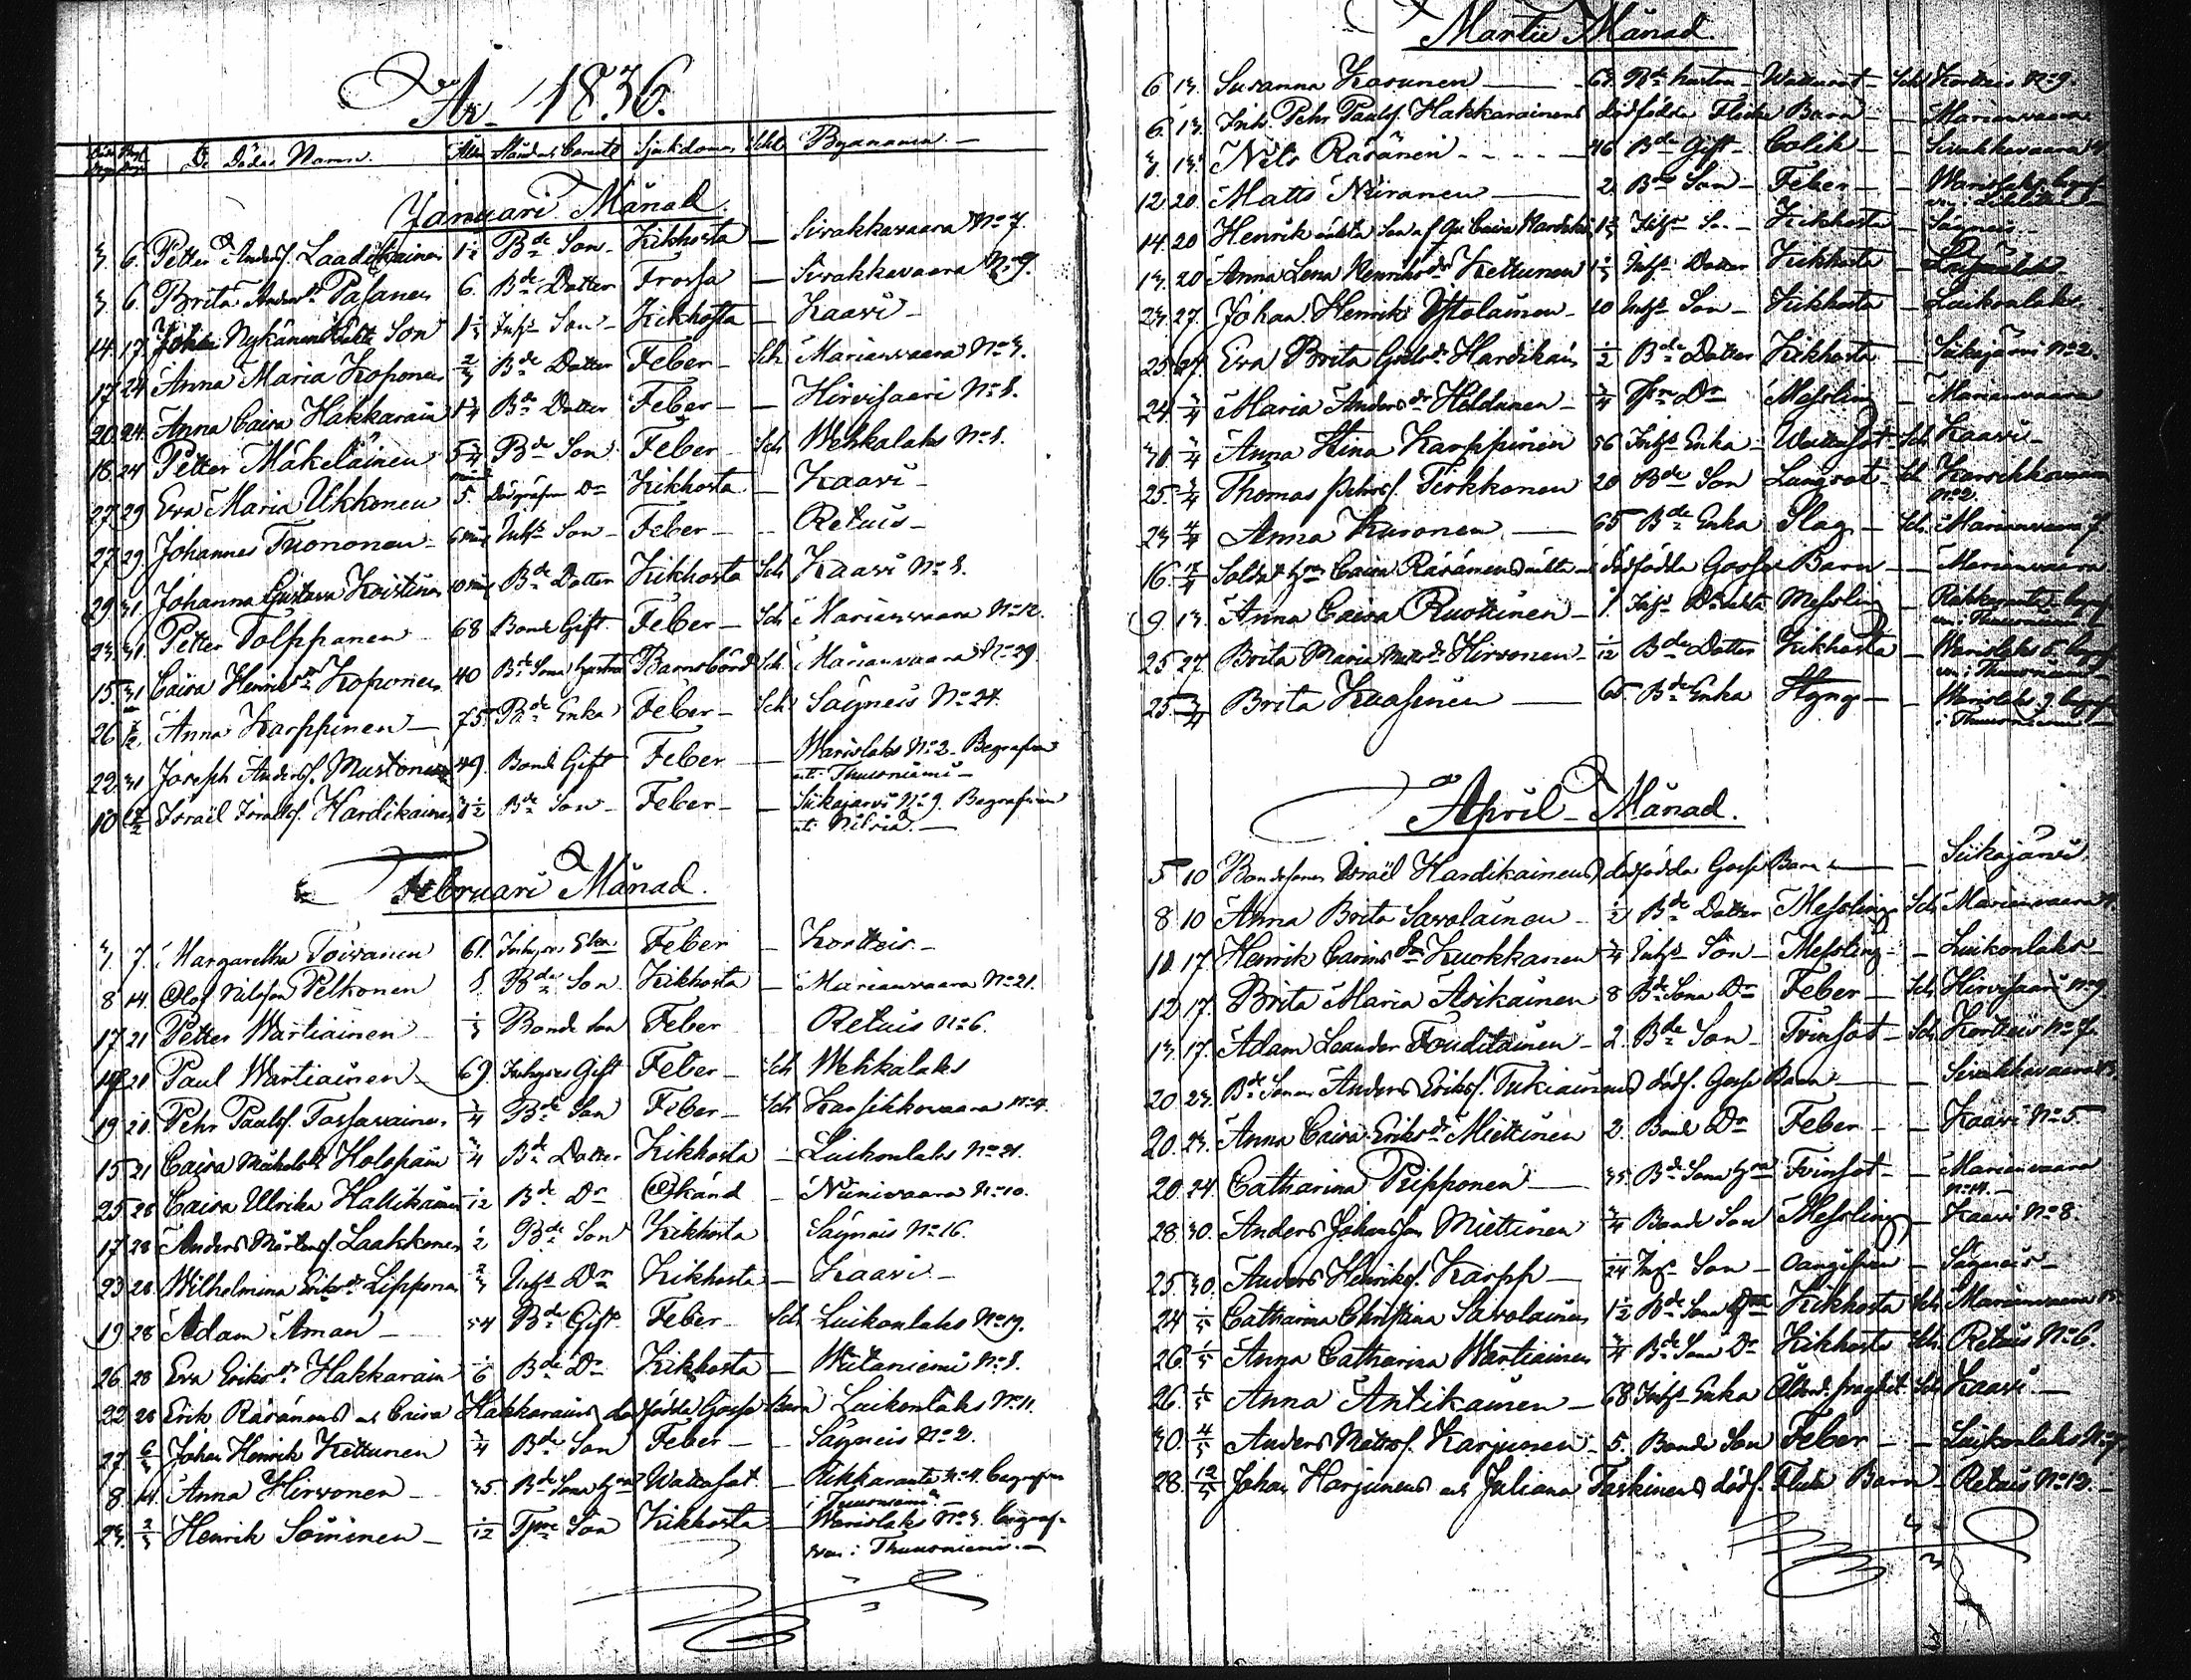 År 1836.
De Dödas Namn. Ålder Stånd och Caracter Sjukdomar Schl Byanamn.
Januari Månad.
3. 6. Petter Andersf. Laadikainen 1½ Bde Son Kikhosta — Sivakkavaara No 7.
3 6. Brita Andersdr Pasanen 6. Bde Dotter Frossa — Sivakkavaara No 9.
14 17 Nykänens Son Inhs Son Kikhosta — Kaavi
17 24 Anna Maria Koponen 2/3 Bde Dotter Feber Sch Marianvaara No 3.
20 24 Anna Caisa Hakkarain Bde Dotter Feber — Hirvisaari No 8.
18 24 Petter Mäkeläinen Bde Son Feber Sch Wehkalaks No 8.
27 29 Eva Maria Ukkonen 5. Dr Kikhosta — Kaavi
27 29. Johannes Tuononen 6 mån Inhs Son Feber — Retuis
29 31. Johanna Gustava Koistinen 10 mån Bde Dotter Kikhosta Sch Kaavi No 8.
23. 31. Petter Tolppanen 68 Bonde Gift Feber Sch Marianvaara No 12.
15. 31 Caisa Henriksdr Koponen 40 Bde Sona hustru Barnsbörd Sch Marianvaara No 29.
26 7/2 Anna Karppinen — 75. Bde Enka Feber Sch Säyneis No 24.
22. 31 Joseph Andersf. Mustonen 49. Bonde Gift Feber — Warislaks No 2. Begrafven
uti Thuusniemi
10 Israël Israelsf. Hardikainen Bde Son Feber — Siikajärvi No 9. Begrafven
uti Nilsiä.
Februari Månad.
3. 7. Margaretha Toivanen 61. Inhyses Feber — Kortteis
8 14. Olof Nilsson Pelkonen Bde Son Kikhosta — Marianvaara No 21.
17 21 Petter Wartiainen 1/3 Bonde Son Feber Retuis No 6.
21 Paul Wartiainen 69. Inhyses Gift Feber Sch Wehkalaks
19 21. Pehr Paulsf. Tossavainen ¾ Bde Son Feber Sch Karsikkovaara No 4.
15 21 Caisa Holopain ¾ Bde Dotter Kikhosta — Luikonlaks No 21.
25 28 Caisa Ulrika Hallikainen 1/12 Bde Dr Okänd — Niinivaara No 10.
17 28 Anders Mårtensf. Laakkonen ½ Bde Son Kikhosta Säyneis No 16.
23 28 Wilhelmina Eriksdr Lipponen 2/3 Inhs Dr Kikhosta — Kaavi
19 28 Adam Åman — 54 Bde Gift Feber Sch Luikonlaks No 19.
26 28 Eva Eriksdr Hakkarain 1/6 Bde Dr Kikhosta — Wiitaniemi No 8.
22 28 Erik Räsänens och Caisa Hakkarains dödfödda Gosse Barn Luikonlaks No 11.
27 6/3 Johan Henrik Kettunen ¾ Bde Son Feber — Säyneis No 2.
8 14. Anna Hirvonen — 35. Bde Sona Hru Wattusot — Rikkaranta No 4. begrafven
i Thuusniemi
23. 2/3 Henrik Soininen — 1/12 Son Kikhosta — Warislaks No 3. begraf-
ven i Thuusniemi.
Martii Månad.
6 13. Susanna Kasunen — 63. Bde hustru Wattusot Sch Kortteis No 9.
6. 13. Inhs. Pehr Paulsf. Hakkarainens dödfödda Flicke Barn — Marianvaara
3. 13. Nils Räsänen 46 Bde Gift Colik — Sivakkavaara
12. 20. Matts Niiranen — 2. Bde Son Feber — Warislaks
14 20 Henrik oäkta Son af Caisa Inhs Son Kikhosta — Säyneis
13. 20 Anna Lena Henriksdr Kettunen Inhs Dotter Kikhosta —
23. 27. Johan Henrik 10 Inhs Son Kikhosta — Luikonlaks
25 27. Eva Brita Hardikain ½ Bde Dotter Kikhosta — Siikajärvi No 2.
24. 3/4 Maria Andersdr Hildunen ¾ Dr Messling — Marianvaara
30. 3/4 Anna Stina Karppinen 56 Inhs Enka Wattusot Sch Kaavi
25. 3/4 Thomas Pehrsf. Tirkkonen 20 Bde Son Lungsot Sch Karsikkovaara
No 2.
23 4/4 Anna Kuronen — 65 Bde Enka Slag Sch Marianvaara 7
16 Soldat Caisa Räsänens oäkta dödfödda Gosse Barn — Marianvaara
9. 13. Anna Caisa Ruottinen 1. Inhs Dr oäkta Messling —
25 27 Brita Maria Hirvonen 1/12 Bde Dotter Kikhosta — Warislaks 6. begraf
ven i Thuusniemi
25. 3/4 Brita Kuosmanen — 65. Bde Enka Styng — Warislaks 9. begraf
i Thuusniemi
April Månad.
5 10 Bondesonen Israël Hardikainens dödfödda Gosse Barn — Siikajärvi
8 10 Anna Brita Savolainen ½ Bde Dotter Messling Sch Marianvaara
10 17 Henrik Kuokkanen ¾ Inhs Son Messling — Luikonlaks
12 17. Brita Maria Asikainen 8 Bde Sona Dr Feber Sch Hirvisaari No 9
13. 17. Adam Leander Fouditainen 2. Bde Son Tvinsot Sch Kortteis No 7.
20 23. Bde Sonen Anders Eriksf. Tukiainens dödf. Gosse Barn — Sivakkavaara
20. 23. Anna Caisa Eriksdr Miettinen 2. Bonde Dr Feber — Kaavi No 5.
20. 24. Catharina Piipponen — 35. Bde Sona Hru Tvinsot — Marianvaara
No 14.
28 30. Anders Johansson Miettinen ¾ Bonde Son Messling — Kaavi No 8.
25. 30. Anders Henriksf. Karpp — 1/24 Inhs Son Oangifven — Säyneis
24 1/5 Catharina Christina Savolainen 1½ Bde Sona Kikhosta Sch Marianvaara
26. 1/5 Anna Catharina Wartiainen ¾ Bde Sona Dr Kikhosta Sch. Retuis No 6.
26. 1/5 Anna Antikainen — 68 Inhs Enka Ålderd. svaghet Sch Kaavi.
30. 4/5 Anders Mattsf. Karjunen 5. Bonde Son Feber — Luikonlaks
28. 12/5 Johan Harjunens och Juliana Taskinens dödf. Flicke Barn Retuis No 12.